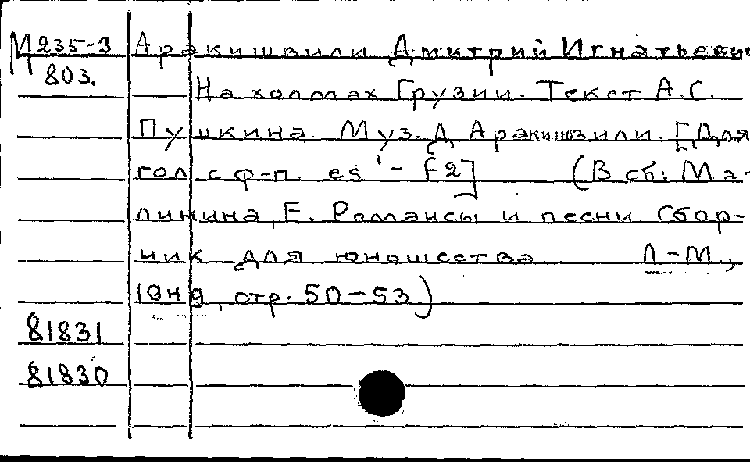 М 235-3 Аракишвили Дмитрий Игнатьевич
803. На холмах Грузии. Текст А.С.
Пушкина. Муз. Д Аракишвили. [Для
гол с ф-п. es'-f2] (В сб: Ма-
линина, Е. Романсы и песни Сбор-
ник для юношества Л-М.,
стр. 50-53)
81831
81830